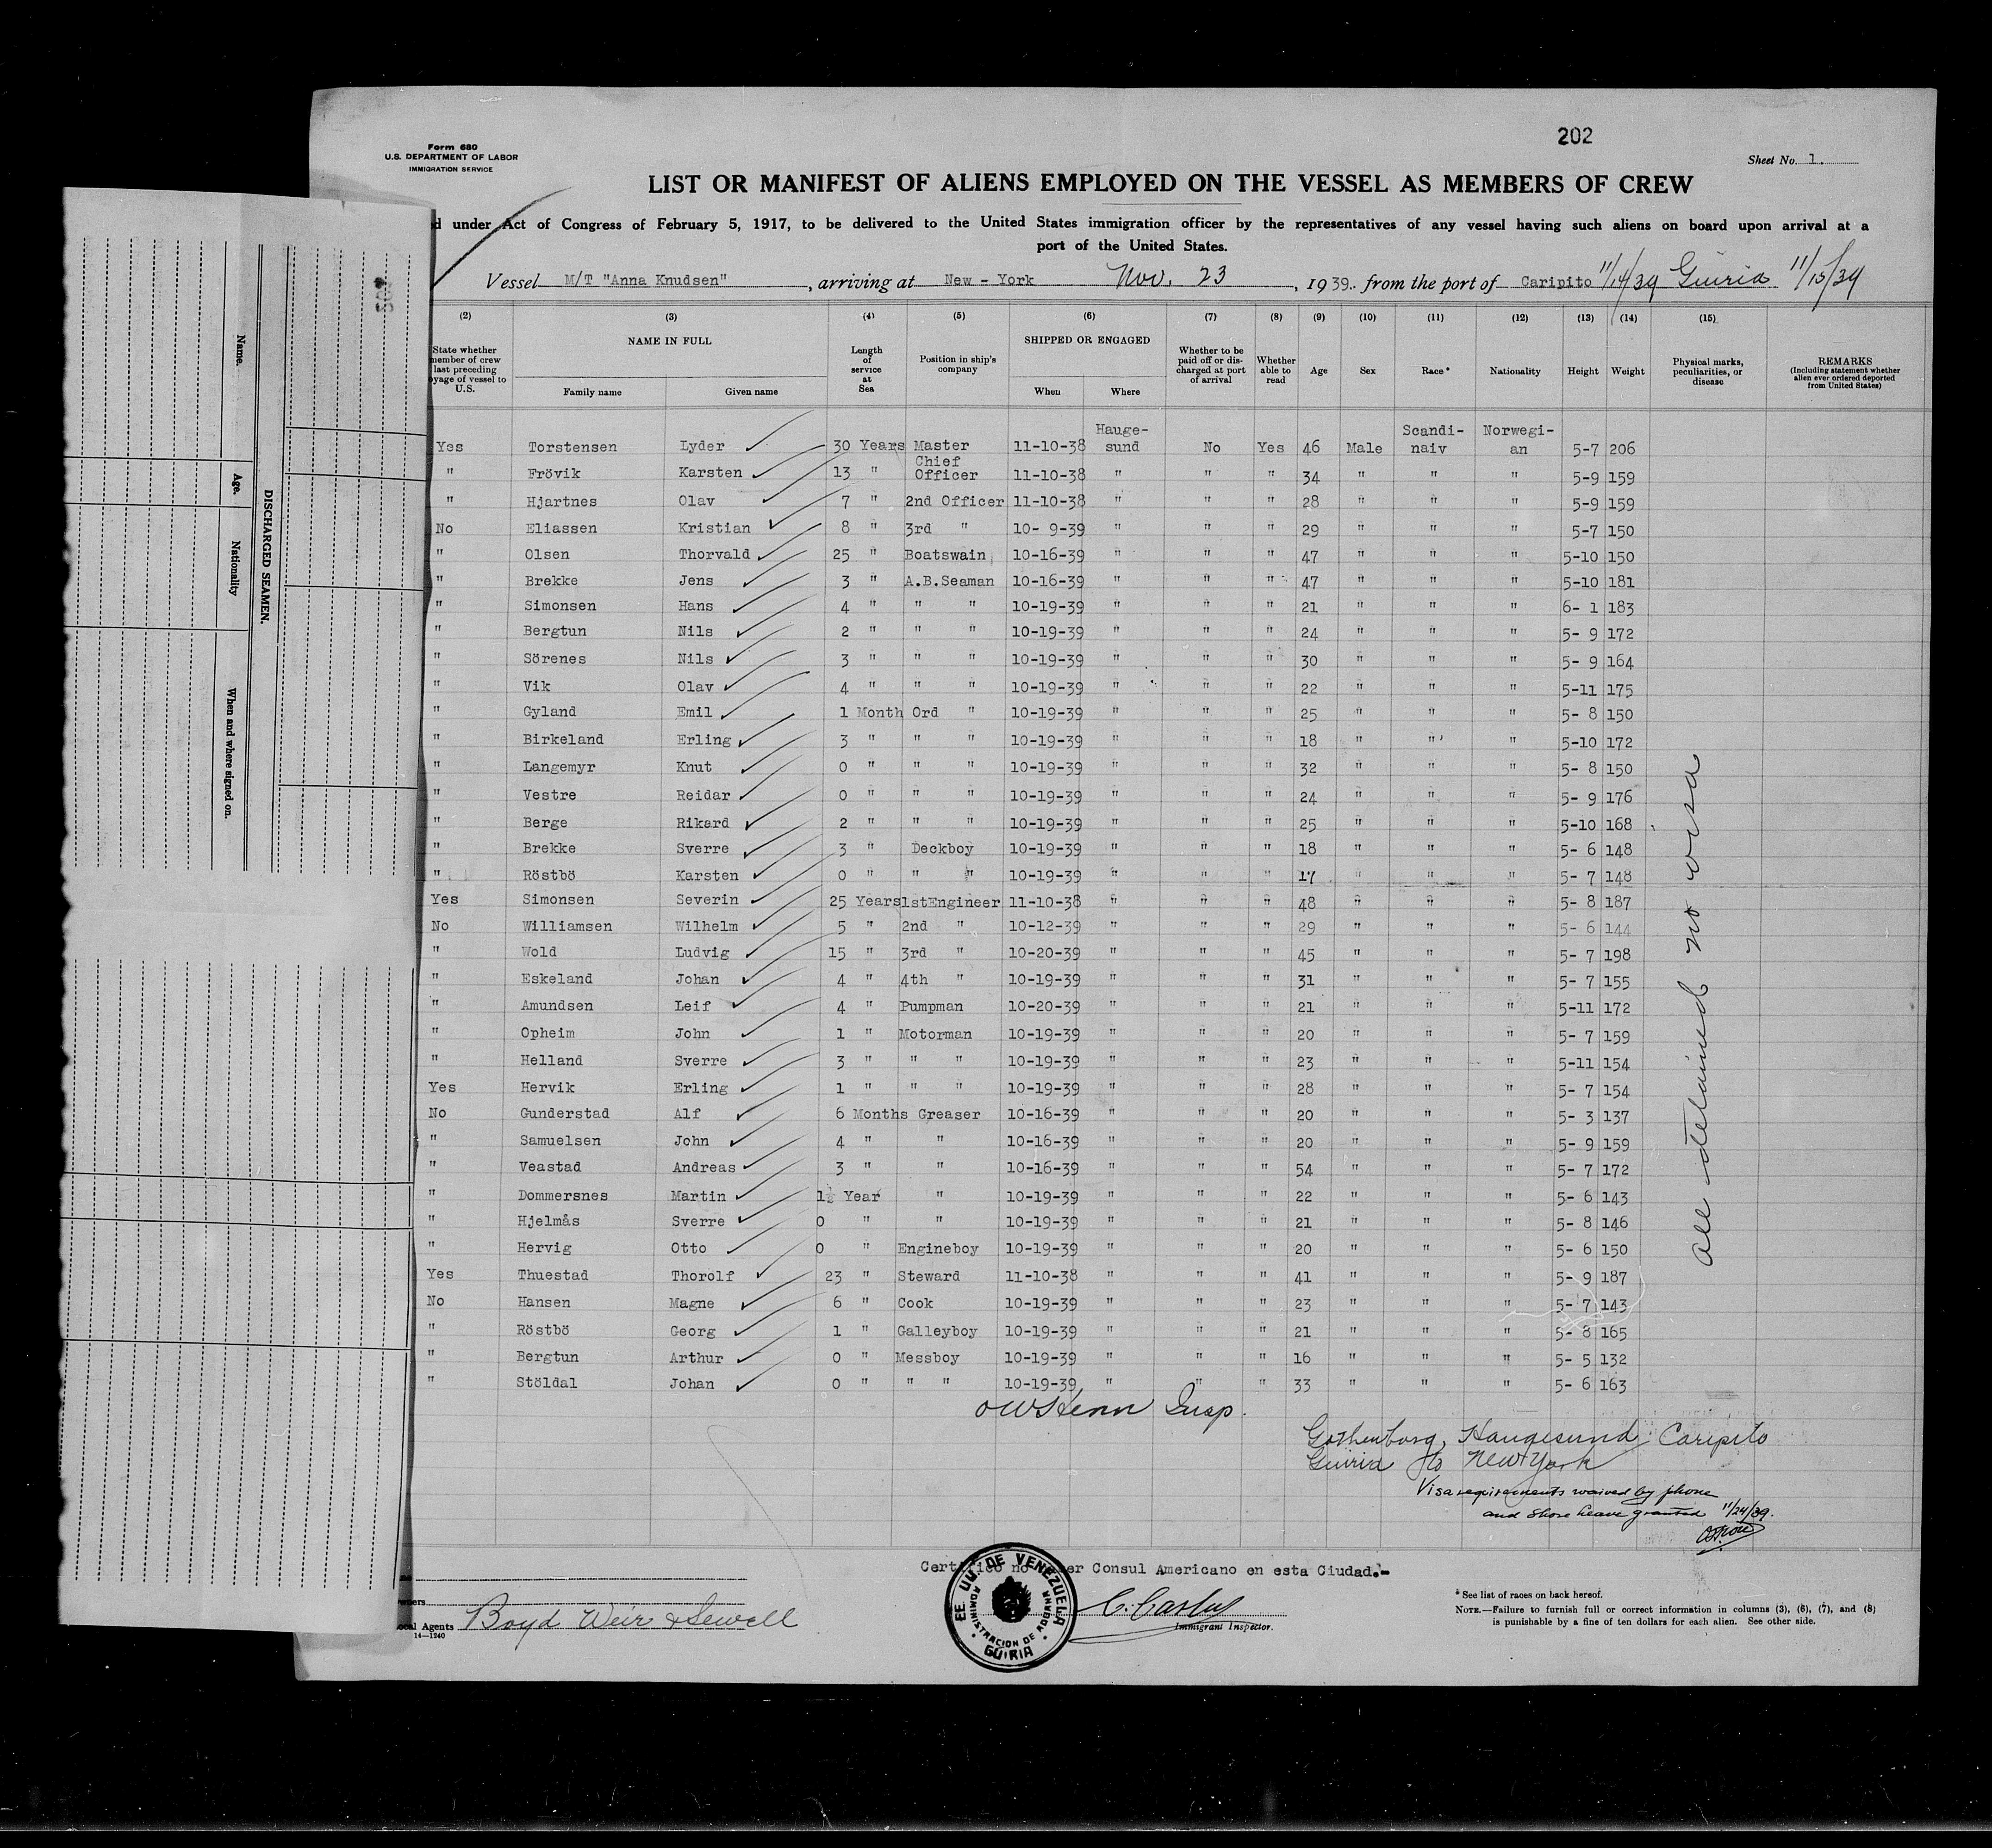 202
Form 680
U.S. DEPARTMENT OF LABOR
IMMIGRATION SERVICE
Sheet No. 1.
LIST OR MANIFEST OF ALIENS EMPLOYED ON THE VESSEL AS MEMBERS OF CREW
under Act of Congress of February 5, 1917, to be delivered to the United States immigration officer by the representatives of any vessel having such aliens on board upon arrival at a
port of the United States.
Vessel M/T "Anna Knudsen", arriving at New - York Nov. 23, 1939. from the port of Caripito 11/14/39 Guiria 11/15/39
(2) (3) (4) (5) (6) (7) (8) (9) (10) (11) (12) (13) (14) (15)
State whether member of crew last preceding voyage of vessel to U.S. NAME IN FULL Family name Given name Length of service at Sea Position in ship's company SHIPPED OR ENGAGED When Where Whether to be paid off or discharged at port of arrival Whether able to read Age Sex Race* Nationality Height Weight Physical marks, peculiarities, or disease REMARKS (Including statement whether alien ever ordered deported from United States)
Yes Torstensen Lyder 30 Years Master 11-10-38 Hauge-sund No Yes 46 Male Scandi-naiv Norwegi-an 5-7 206
" Frövik Karsten 13 " Chief Officer 11-10-38 " " " 34 " " " 5-9 159
" Hjartnes Olav 7 " 2nd Officer 11-10-38 " " " 28 " " " 5-9 159
No Eliassen Kristian 8 " 3rd " 10- 9-39 " " " 29 " " " 5-7 150
" Olsen Thorvald 25 " Boatswain 10-16-39 " " " 47 " " " 5-10 150
" Brekke Jens 3 " A.B.Seaman 10-16-39 " " " 47 " " " 5-10 181
" Simonsen Hans 4 " " " 10-19-39 " " " 21 " " " 6- 1 183
" Bergtun Nils 2 " " " 10-19-39 " " " 24 " " " 5- 9 172
" Sörenes Nils 3 " " " 10-19-39 " " " 30 " " " 5- 9 164
" Vik Olav 4 " " " 10-19-39 " " " 22 " " " 5-11 175
" Gyland Emil 1 Month Ord " 10-19-39 " " " 25 " " " 5- 8 150
" Birkeland Erling 3 " " " 10-19-39 " " " 18 " " " 5-10 172
" Langemyr Knut 0 " " " 10-19-39 " " " 32 " " " 5- 8 150
" Vestre Reidar 0 " " " 10-19-39 " " " 24 " " " 5- 9 176
" Berge Rikard 2 " " " 10-19-39 " " " 25 " " " 5-10 168
" Brekke Sverre 3 " Deckboy 10-19-39 " " " 18 " " " 5- 6 148
" Röstbö Karsten 0 " " " 10-19-39 " " " 17 " " " 5- 7 148
Yes Simonsen Severin 25 Years 1stEngineer 11-10-38 " " " 48 " " " 5- 8 187
No Williamsen Wilhelm 5 " 2nd " 10-12-39 " " " 29 " " " 5- 6 144
" Wold Ludvig 15 " 3rd " 10-20-39 " " " 45 " " " 5- 7 198
" Eskeland Johan 4 " 4th " 10-19-39 " " " 31 " " " 5- 7 155
" Amundsen Leif 4 " Pumpman 10-20-39 " " " 21 " " " 5-11 172
" Opheim John 1 " Motorman 10-19-39 " " " 20 " " " 5- 7 159
" Helland Sverre 3 " " " 10-19-39 " " " 23 " " " 5-11 154
Yes Hervik Erling 1 " " " 10-19-39 " " " 28 " " " 5- 7 154
No Gunderstad Alf 6 Months Greaser 10-16-39 " " " 20 " " " 5- 3 137
" Samuelsen John 4 " " 10-16-39 " " " 20 " " " 5- 9 159
" Veastad Andreas 3 " " 10-16-39 " " " 54 " " " 5- 7 172
" Dommersnes Martin 1½ Year " 10-19-39 " " " 22 " " " 5- 6 143
" Hjelmås Sverre 0 " " 10-19-39 " " " 21 " " " 5- 8 146
" Hervig Otto 0 " Engineboy 10-19-39 " " " 20 " " " 5- 6 150
Yes Thuestad Thorolf 23 " Steward 11-10-38 " " " 41 " " " 5- 9 187
No Hansen Magne 6 " Cook 10-19-39 " " " 23 " " " 5- 7 143
" Röstbö Georg 1 " Galleyboy 10-19-39 " " " 21 " " " 5- 8 165
" Bergtun Arthur 0 " Messboy 10-19-39 " " " 16 " " " 5- 5 132
" Stöldal Johan 0 " " " 10-19-39 " " " 33 " " " 5- 6 163
All detained no visa
OWStenn Insp.
Gothenborg, Haugesund Caripito
Guiria to New York
Visa requirements waived by phone
and shore leave granted 11/24/39.
Certifico no Consul Americano en esta Ciudad.-
EE. UU. DE VENEZUELA
ADMINISTRACION DE ADUANA
GÜIRIA
Immigrant Inspector.
Local Agents Boyd Weir & Sewell
14—1240
* See list of races on back hereof.
NOTE.—Failure to furnish full or correct information in columns (3), (6), (7), and (8)
is punishable by a fine of ten dollars for each alien. See other side.
DISCHARGED SEAMEN.
Name.
Age.
Nationality
When and where signed on.